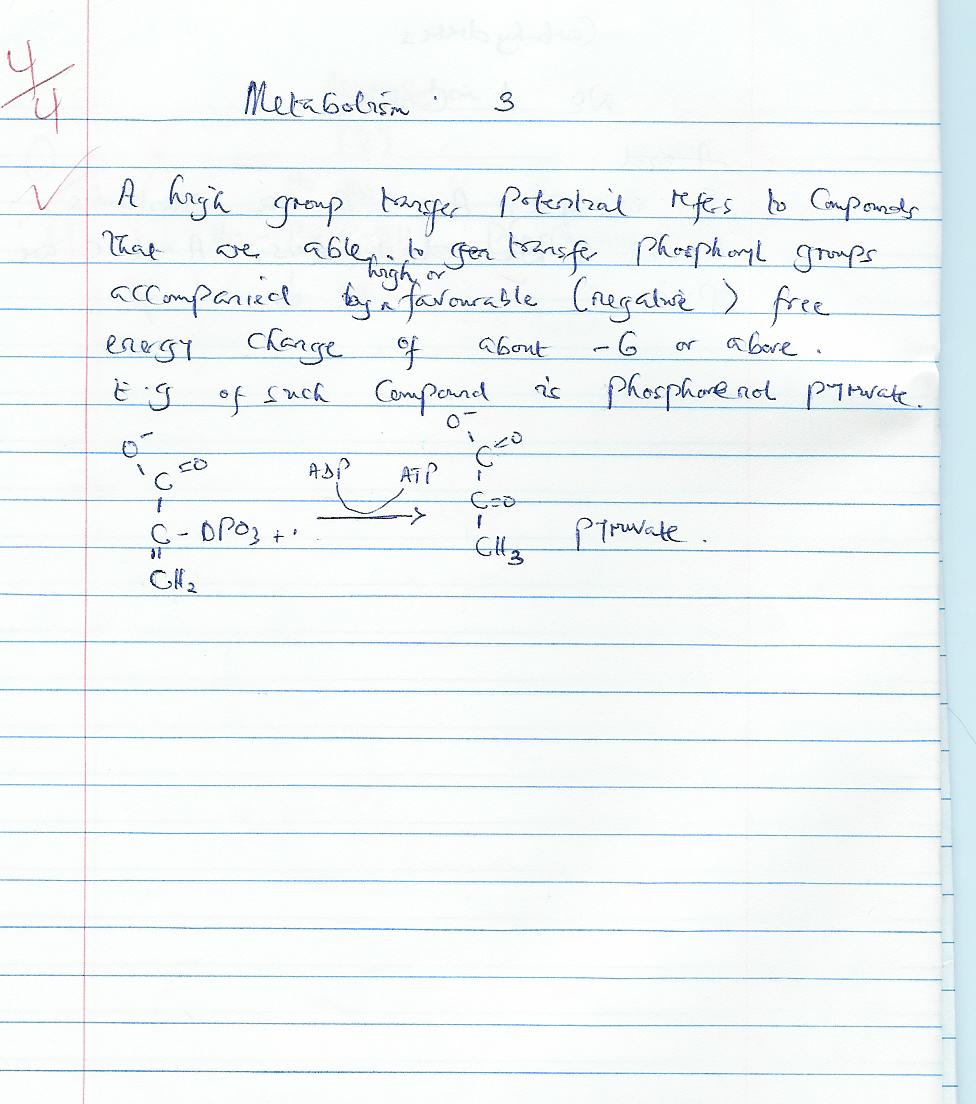 4/4
Metabolism. 3
A high group transfer potential refers to Compounds
that are able. to gen transfer phosphoryl groups
high or
accompanied by a favourable (negative) free
energy change of about -6 or above.
E.g of such Compound is phosphoenol pyruvate.
O⁻ O⁻
C=O ADP ATP C=O
C - OPO3 + C=O pyruvate.
CH2 CH3